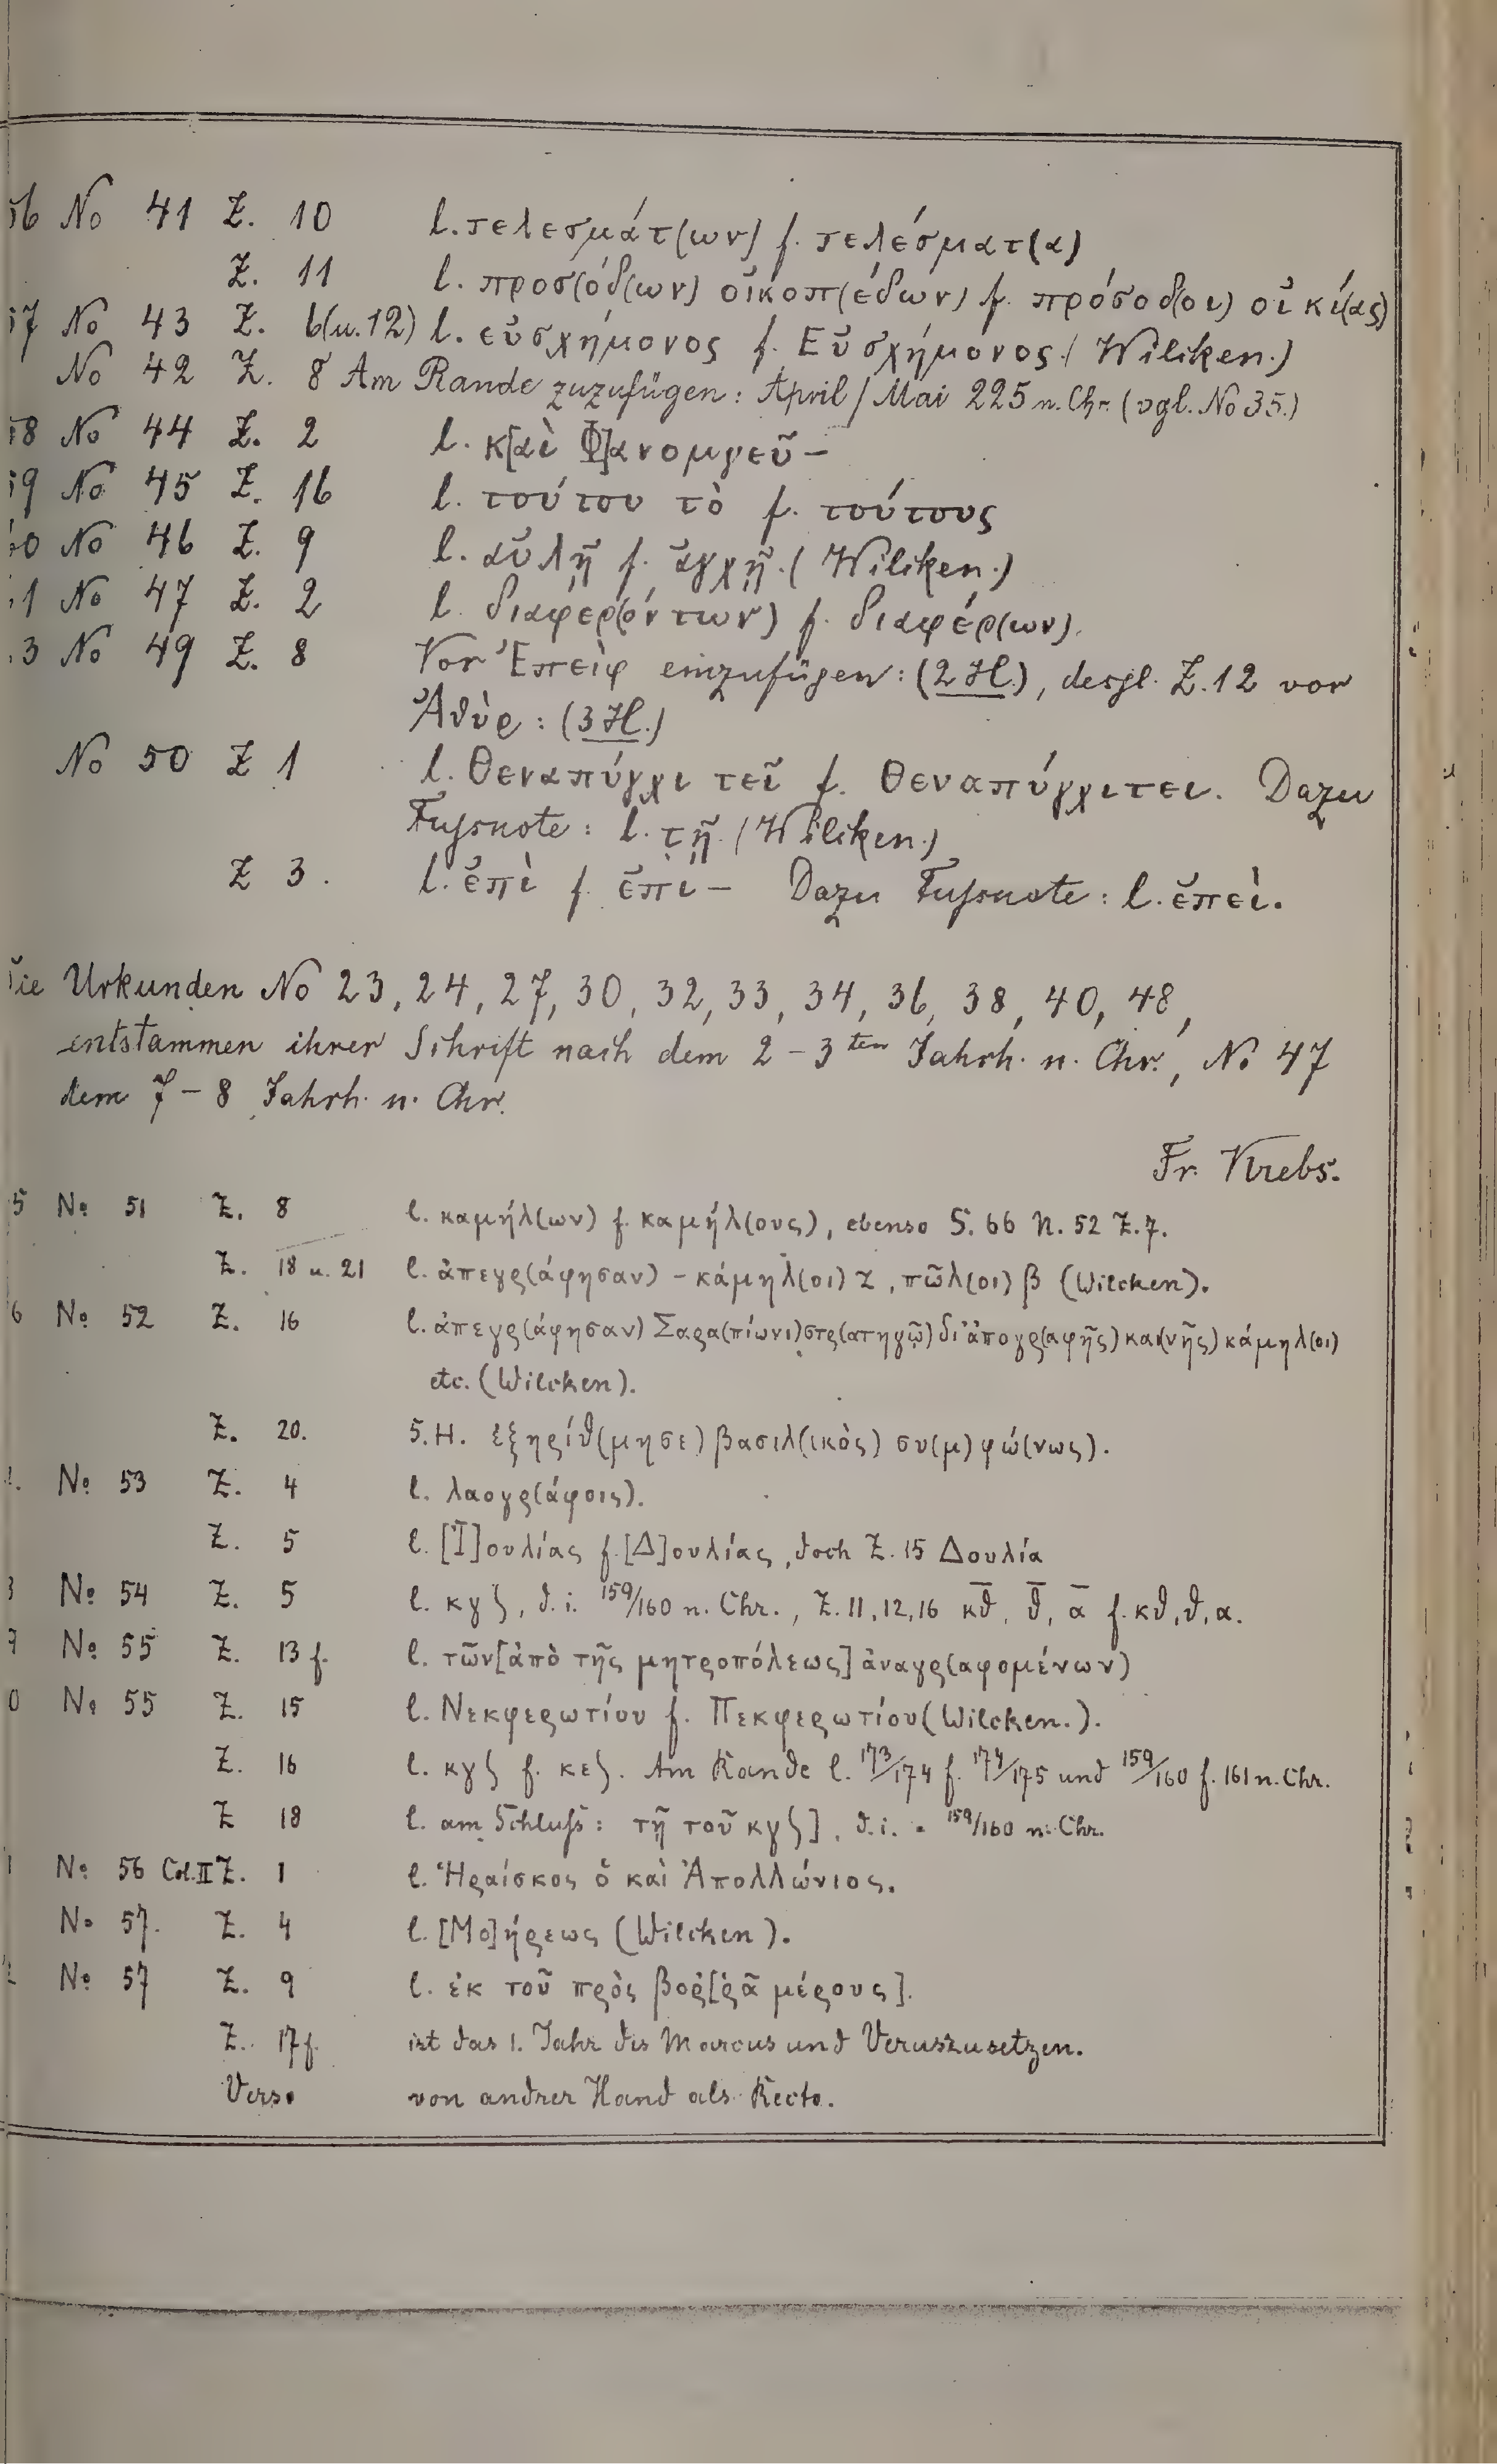 56 No 41 Z. 10 l. τελεσμάτ(ων) f. τελέσματ(α)
Z. 11 l. προσ(όδ(ων) οἰκοπ(έδων) f. πρόσοδ(οι) οἰκί(ας)
57 No 43 Z. 6(u. 12) l. εὐσχήμονος f. Εὐσχήμονος. (Wilcken.)
No 42 Z. 8 Am Rande zuzufügen: April / Mai 225 n. Chr. (vgl. No 35.)
58 No 44 Z. 2 l. κ[αὶ Φ]ανομγεῦ –
59 No 45 Z. 16 l. τούτου τὸ f. τούτους
60 No 46 Z. 9 l. αὐλῇ f. ἀγχῇ. (Wilcken.)
61 No 47 Z. 2 l. διαφερ(όντων) f. διαφέρ(ων).
63 No 49 Z. 8 Vor Ἐπεὶφ einzufügen: (2 H.), desgl. Z. 12 vor
Ἁθὺρ: (3 H.)
No 50 Z 1 l. Θεναπύγχι τεῖ f. Θεναπύγχιτει. Dazu
Fußnote: l. τῇ. (Wilcken.)
Z 3. l. ἐπὶ f. ἐπι – Dazu Fußnote: l. ἐπεὶ.
Die Urkunden No 23, 24, 27, 30, 32, 33, 34, 36, 38, 40, 48,
entstammen ihrer Schrift nach dem 2 – 3ten Jahrh. n. Chr., No 47
dem 7 – 8 Jahrh. n. Chr.
Fr. Krebs.
5 No 51 Z. 8 l. καμήλ(ων) f. καμήλ(ους), ebenso S. 66 N. 52 Z. 7.
Z. 18 u. 21 l. ἀπεγρ(άφησαν) – κάμηλ(οι) ζ, πῶλ(οι) β (Wilcken).
6 No 52 Z. 16 l. ἀπεγρ(άφησαν) Σαρα(πίωνι) στρ(ατηγῷ) δι' ἀπογρ(αφῆς) και(νῆς) κάμηλ(οι)
etc. (Wilcken).
Z. 20. 5. H. ἐξηρίθ(μησε) βασιλ(ικὸς) συ(μ)φώ(νως).
No 53 Z. 4 l. λαογρ(άφοις).
Z. 5 l. [Ἰ]ουλίας f. [Δ]ουλίας, doch Z. 15 Δουλία
3 No 54 Z. 5 l. κγ ϛ, d. i. 159/160 n. Chr., Z. 11, 12, 16 κθ̄, θ̄, ᾱ f. κθ, θ, α.
No 55 Z. 13 f. l. τῶν [ἀπὸ τῆς μητροπόλεως] ἀναγρ(αφομένων)
0 No 55 Z. 15 l. Νεκφερωτίου f. Πεκφερωτίου (Wilcken.).
Z. 16 l. κγ ϛ f. κε ϛ. Am Rande l. 173/174 f. 174/175 und 159/160 f. 161 n. Chr.
Z 18 l. am Schluß: τῇ τοῦ κγ ϛ], d. i. 159/160 n. Chr.
No 56 Col. II Z. 1 l. Ἡραίσκος ὁ καὶ Ἀπολλώνιος.
No 57. Z. 4 l. [Μο]ήρεως (Wilcken).
No 57 Z. 9 l. ἐκ τοῦ πρὸς βορ[ρᾶ μέρους].
Z. 17 f. ist das 1. Jahr des Marcus und Verus zu setzen.
Verso von andrer Hand als Recto.